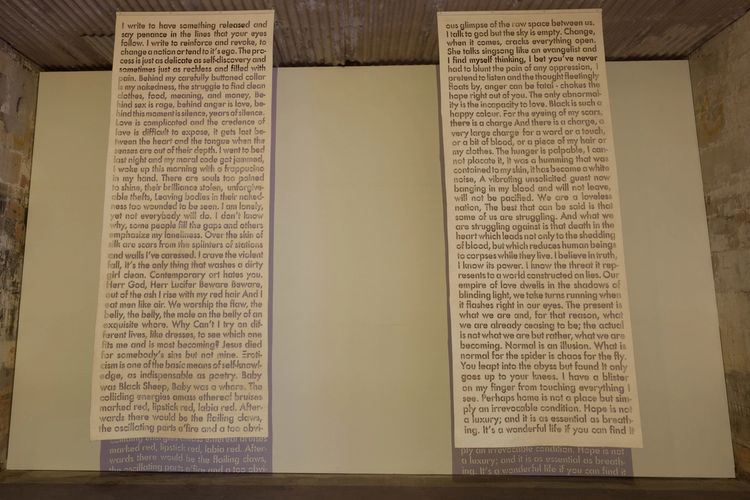 I write to have something released and
say penance in the lines that your eyes
follow. I write to reinforce and revoke, to
change a notion or tend to it's ego. The pro-
cess is just as delicate as self-discovery and
sometimes just as reckless and filled with
pain. Behind my carefully buttoned collar
is my nakedness, the struggle to find clean
clothes, food, meaning, and money, Be-
hind sex is rage, behind anger is love, be-
hind this moment is silence, years of silence.
Love is complicated and the credence of
love is difficult to expose, it gets lost be-
tween the heart and the tongue when the
senses are out of their depth. I went to bed
last night and my moral code got jammed,
I woke up this morning with a frappucino
in my hand. There are souls too pained
to shine, their brilliance stolen, unforgiv-
able thefts, Leaving bodies in their naked-
ness too wounded to be seen. I am lonely,
yet not everybody will do. I don't know
why, some people fill the gaps and others
emphasize my loneliness. Over the skin of
silk are scars from the splinters of stations
and walls I've caressed. I crave the violent
fall, it's the only thing that washes a dirty
girl clean. Contemporary art hates you.
Herr God, Herr Lucifer Beware Beware,
out of the ash I rise with my red hair And I
eat men like air. We worship the flaw, the
belly, the belly, the mole on the belly of an
exquisite whore. Why Can't I try on dif-
ferent lives, like dresses, to see which one
fits me and is most becoming? Jesus died
for somebody's sins but not mine. Eroti-
cism is one of the basic means of self-knowl-
edge, as indispensable as poetry. Baby
was Black Sheep, Baby was a whore. The
colliding energies amass ethereal bruises
marked red, lipstick red, labia red. After-
wards there would be the flailing claws,
the oscillating parts a'fire and a too obvi-
colliding energies amass ethereal bruises
marked red, lipstick red, labia red. After-
wards there would be the flailing claws,
the oscillating parts a'fire and a too obvi-
ous glimpse of the raw space between us.
I talk to god but the sky is empty. Change,
when it comes, cracks everything open.
She talks singsong like an evangelist and
I find myself thinking, I bet you've never
had to blunt the pain of any oppression, I
pretend to listen and the thought fleetingly
floats by, anger can be fatal - chokes the
hope right out of you. The only abnormal-
ity is the incapacity to love. Black is such a
happy colour. For the eyeing of my scars,
there is a charge And there is a charge, a
very large charge for a word or a touch,
or a bit of blood, or a piece of my hair or
my clothes. The hunger is palpable, I can-
not placate it, it was a humming that was
contained to my skin, it has become a white
noise, A vibrating unsolicited guest now
banging in my blood and will not leave,
will not be pacified. We are a loveless
nation, The best that can be said is that
some of us are struggling. And what we
are struggling against is that death in the
heart which leads not only to the shedding
of blood, but which reduces human beings
to corpses while they live. I believe in truth,
I know its power. I know the threat it rep-
resents to a world constructed on lies. Our
empire of love dwells in the shadows of
blinding light, we take turns running when
it flashes right in our eyes. The present is
what we are and, for that reason, what
we are already ceasing to be; the actual
is not what we are but rather, what we are
becoming. Normal is an illusion. What is
normal for the spider is chaos for the fly.
You leapt into the abyss but found it only
goes up to your knees. I have a blister
on my finger from touching everything I
see. Perhaps home is not a place but sim-
ply an irrevocable condition. Hope is not
a luxury; and it is as essential as breath-
ing. It's a wonderful life if you can find it
ply an irrevocable condition. Hope is not
a luxury; and it is as essential as breath-
ing. It's a wonderful life if you can find it